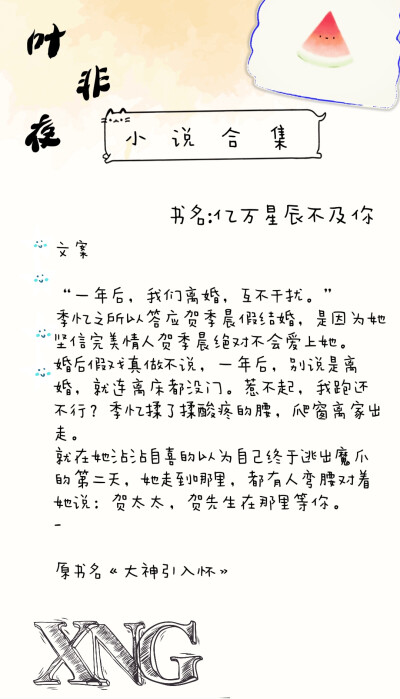 叶非夜
小说合集
书名:亿万星辰不及你
文案
“一年后，我们离婚，互不干扰。”
季忆之所以答应贺季晨假结婚，是因为她
坚信完美情人贺季晨绝对不会爱上她。
婚后假戏真做不说，一年后，别说是离
婚，就连离床都没门。惹不起，我跑还
不行？季忆揉了揉酸疼的腰，爬窗离家出
走。
就在她沾沾自喜的以为自己终于逃出魔爪
的第二天，她走到哪里，都有人弯腰对着
她说：贺太太，贺先生在那里等你。
-
原书名《大神引入怀》
XNG